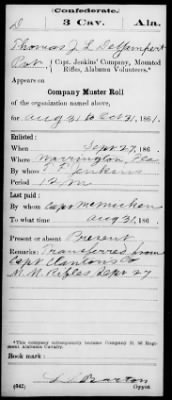 Confederate.
D
3 Cav.
Ala.
Thomas J. L. DeYampert
Pvt
Capt. Jenkins' Company, Mounted
Rifles, Alabama Volunteers.*
Appears on
Company Muster Roll
of the organization named above,
for Aug 31 to Oct 31, 1861.
Enlisted:
When Sept 27, 186 .
Where Warrington, Fla.
By whom T. F. Jenkins
Period 12/m
Last paid:
By whom Capt McMicken
To what time Aug 31, 186 .
Present or absent Present
Remarks: Transferred from
Capt Clantons Co
M. M. Rifles Sept 27
*This company subsequently became Company D, 3d Regiment
Alabama Cavalry.
Book mark:
(642)
Barton
Copyist